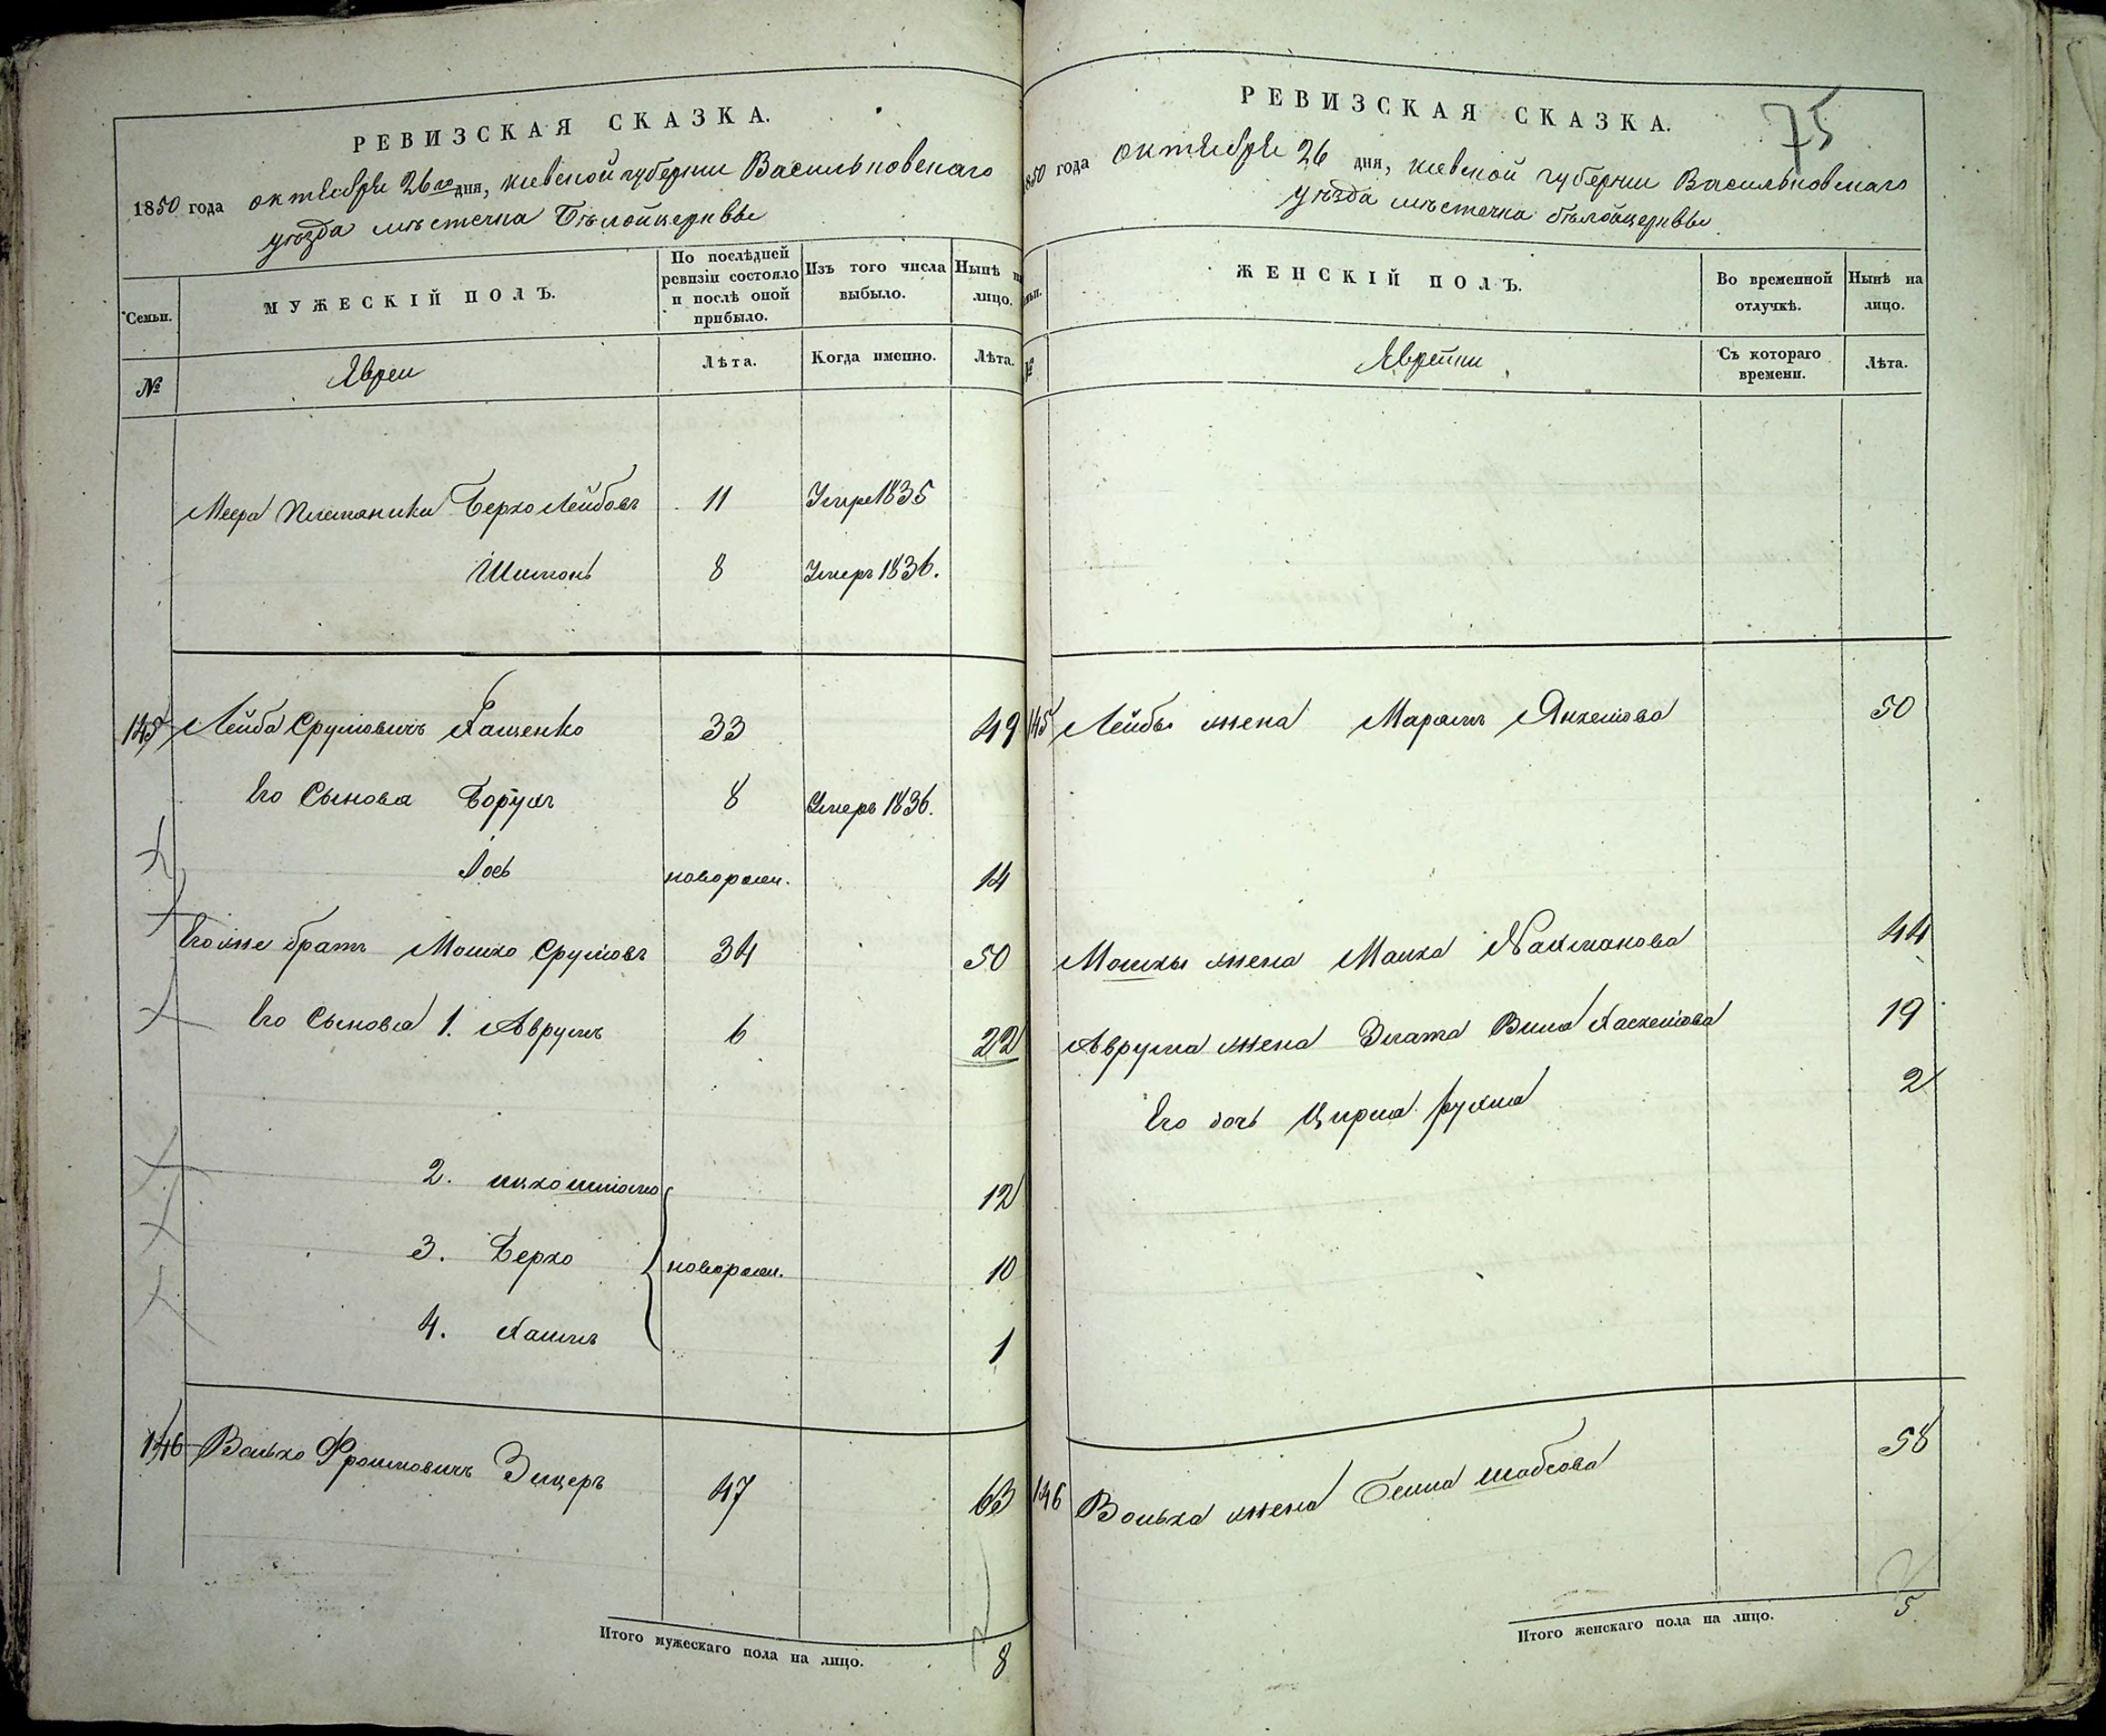 РЕВИЗСКАЯ СКАЗКА.
1850 года октября 26го дня, киевской губернии Васильковскаго
уѣзда мѣстечка Бѣлойцеркви
Семьи.
МУЖЕСКІЙ ПОЛЪ.
По послѣдней
ревизіи состояло
и послѣ оной
прибыло.
Изъ того числа
выбыло.
Нынѣ на
лицо.
№
Евреи
Лѣта.
Когда именно.
Лѣта.
Меера племяники Берко Лейбовъ 11 Умре 1835
Шимонъ 8 Умеръ 1836.
145 Лейба Срулiовичъ Кащенко 33 49
Его Сыновя Борухъ 8 Умеръ 1836.
Iось новорожн. 14
Егоже братъ Мошко Срулiовъ 34 50
Его Сыновя 1. Аврумъ 6 22
2. 12
3. Берко новорожн. 10
4. Хаимъ 1
146 Волько Фроимовичъ 47 63
Итого мужескаго пола на лицо. 8
75
РЕВИЗСКАЯ СКАЗКА.
1850 года октября 26 дня, киевской губернии Васильковскаго
уѣзда мѣстечка бѣлойцеркви.
ЖЕНСКІЙ ПОЛЪ.
Во временной
отлучкѣ.
Нынѣ на
лицо.
№
Еврейки
Съ котораго
времени.
Лѣта.
145 Лейбы жена Марямъ Янкелiова 50
Мошки жена Малка Нахманова 44
Аврума жена Злата Хаскелiова 19
Его дочь Цирля рухля 2
146 Волька жена Бейла шабсова 58
Итого женскаго пола на лицо. 5